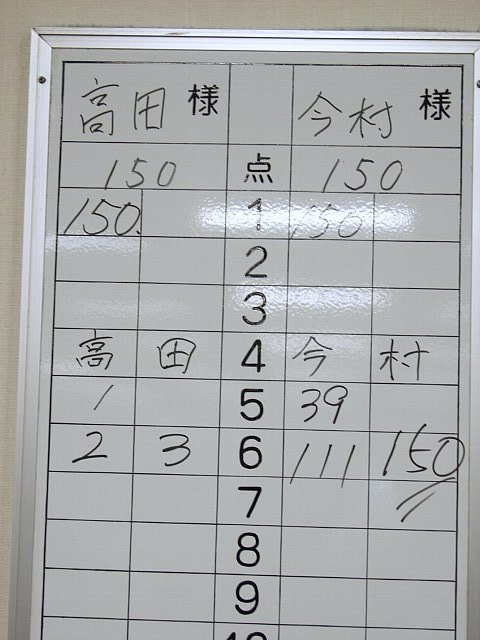 高田 様 今村 様
150 点 150
150 1 150
2
3
高 田 4 今 村
1 5 39
2 3 6 111 150
7
8
9
10